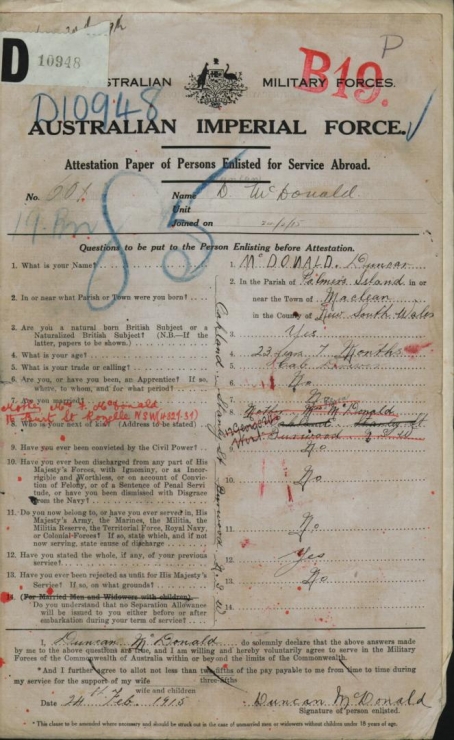 D 10948
P
AUSTRALIAN MILITARY FORCES.
B19.
D10948
AUSTRALIAN IMPERIAL FORCE.
Attestation Paper of Persons Enlisted for Service Abroad.
No. Name D. McDonald
Unit
19. Bn 85
Joined on
Questions to be put to the Person Enlisting before Attestation.
1. What is your Name? 1. McDONALD. Duncan
2. In or near what Parish or Town were you born? 2. In the Parish of Palmers Island in or
near the Town of Maclean
in the County of New South Wales
3. Are you a natural born British Subject or a
Naturalized British Subject? (N.B.—If the
latter, papers to be shown.) 3. Yes
4. What is your age? 4. 23 years 7 Months
5. What is your trade or calling? 5. Cab
6. Are you, or have you been, an Apprentice? If so,
where, to whom, and for what period? 6. No
7. Are you married? 7. No
Mother McDonald
8. Who is your next of kin? (Address to be stated) 8. Mother Mrs McDonald
Oakland Stanley St Burwood N.S.W
9. Have you ever been convicted by the Civil Power? 9. No
10. Have you ever been discharged from any part of His
Majesty's Forces, with Ignominy, or as Incor-
rigible and Worthless, or on account of Convic-
tion of Felony, or of a Sentence of Penal Servi-
tude, or have you been dismissed with Disgrace
from the Navy? 10. No
11. Do you now belong to, or have you ever served in, His
Majesty's Army, the Marines, the Militia, the
Militia Reserve, the Territorial Force, Royal Navy,
or Colonial Forces? If so, state which, and if not
now serving, state cause of discharge 11. No
12. Have you stated the whole, if any, of your previous
service? 12. Yes
13. Have you ever been rejected as unfit for His Majesty's
Service? If so, on what grounds? 13. No
14. (For Married Men and Widowers with children)
Do you understand that no Separation Allowance
will be issued to you either before or after
embarkation during your term of service? 14.
I, Duncan McDonald do solemnly declare that the above answers made
by me to the above questions are true, and I am willing and hereby voluntarily agree to serve in the Military
Forces of the Commonwealth of Australia within or beyond the limits of the Commonwealth.
*And I further agree to allot not less than of the pay payable to me from time to time during
three-fifths
my service for the support of my wife
wife and children
Date 24th Feb. 1915 Duncan McDonald
Signature of person enlisted.
* This clause to be amended where necessary and should be struck out in the case of unmarried men or widowers without children under 18 years of age.